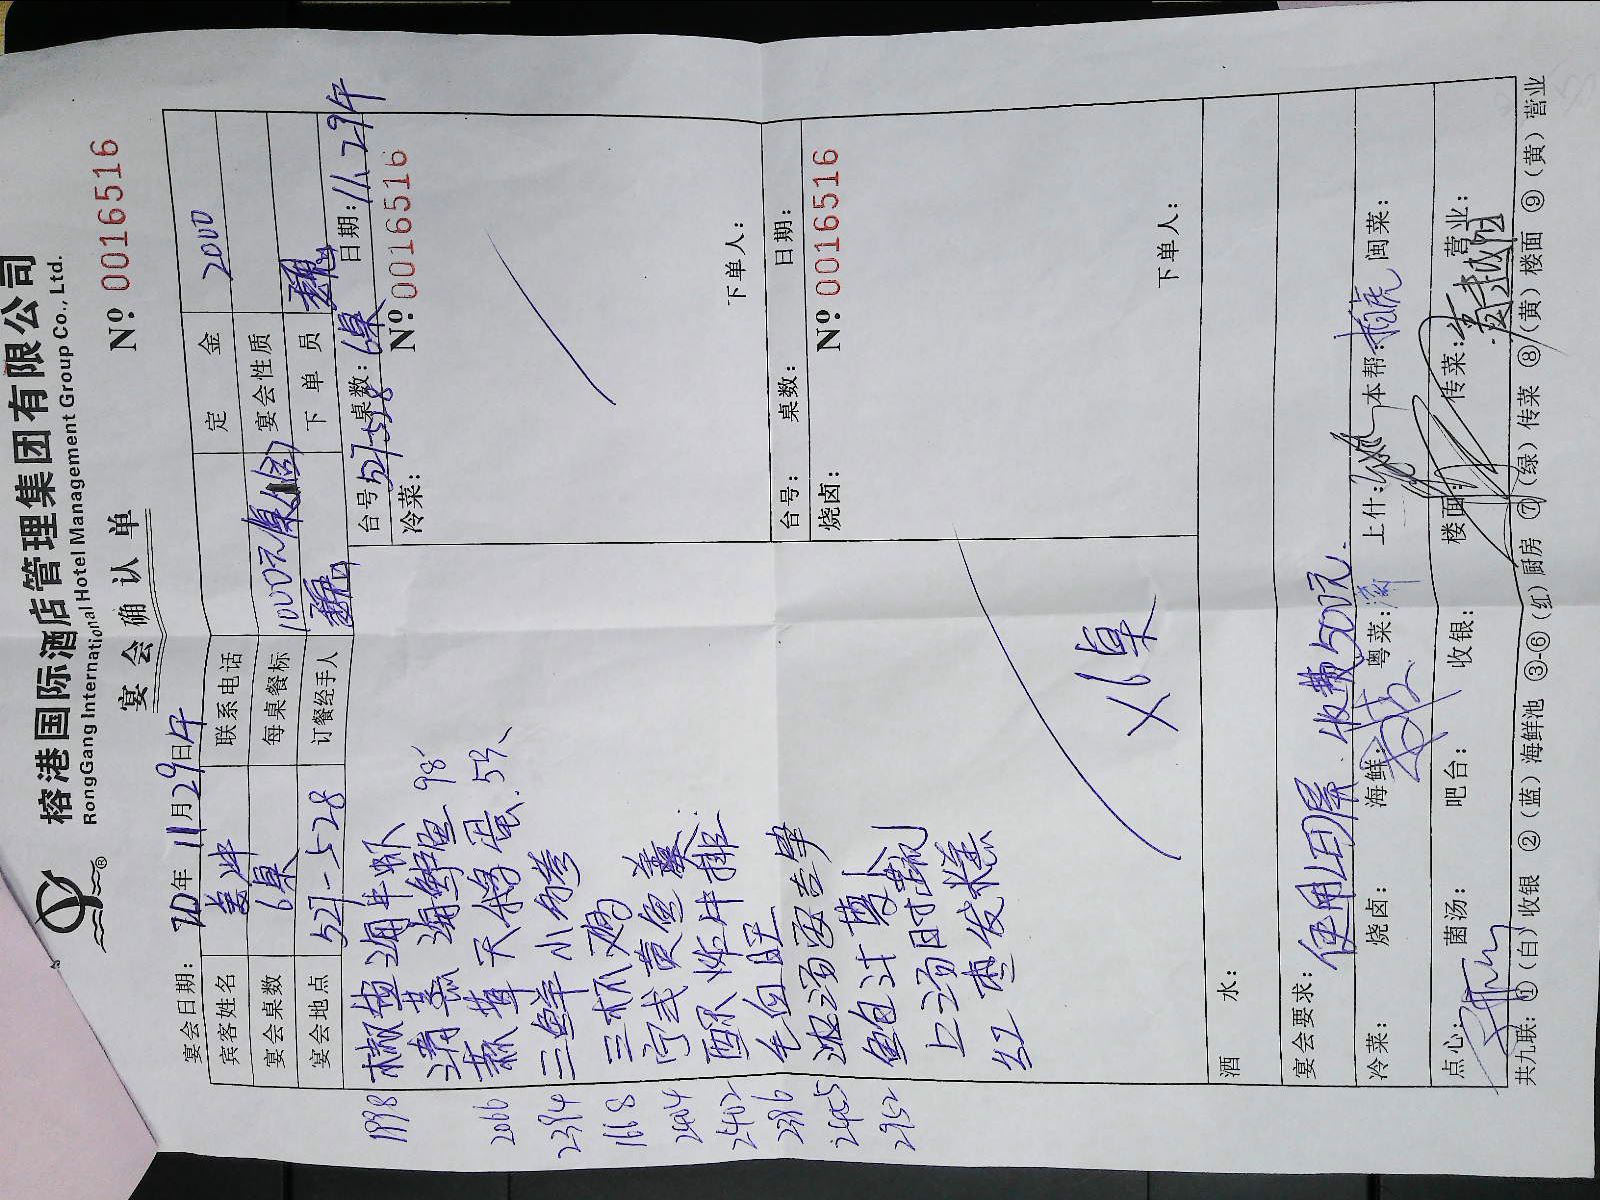 榕港国际酒店管理集团有限公司
RongGang International Hotel Management Group Co., Ltd.
宴会确认单
Nº: 0016516
宴会日期: 20年11月29日午
宾客姓名 联系电话 定金 2000
宴会桌数 6桌 每桌餐标 1000元/桌 宴会性质
宴会地点 527-528 订餐经手人 下单员
台号: 527-528 桌数: 6桌 日期: 11.29午
冷菜: Nº: 0016516
下单人:
台号: 桌数: 日期:
烧卤: Nº: 0016516
下单人:
1998 椒盐海中虾
清蒸海鲜鱼 98
2066
2394 三鲜小
1668 三杯鸡
2404 黄鱼羹
2402 牛排
2386 毛血旺
2405
2952 鲍汁
上汤时蔬
红枣发糕
X6桌
酒水:
宴会要求: 使用LED屏.收费500元.
冷菜: 烧卤: 海鲜: 粤菜: 上什: 本帮: 闽菜:
点心: 菌汤: 吧台: 收银: 楼面: 传菜: 营业:
共九联: ①(白)收银 ②(蓝)海鲜池 ③-⑥(红)厨房 ⑦(绿)传菜 ⑧(黄)楼面 ⑨(黄)营业